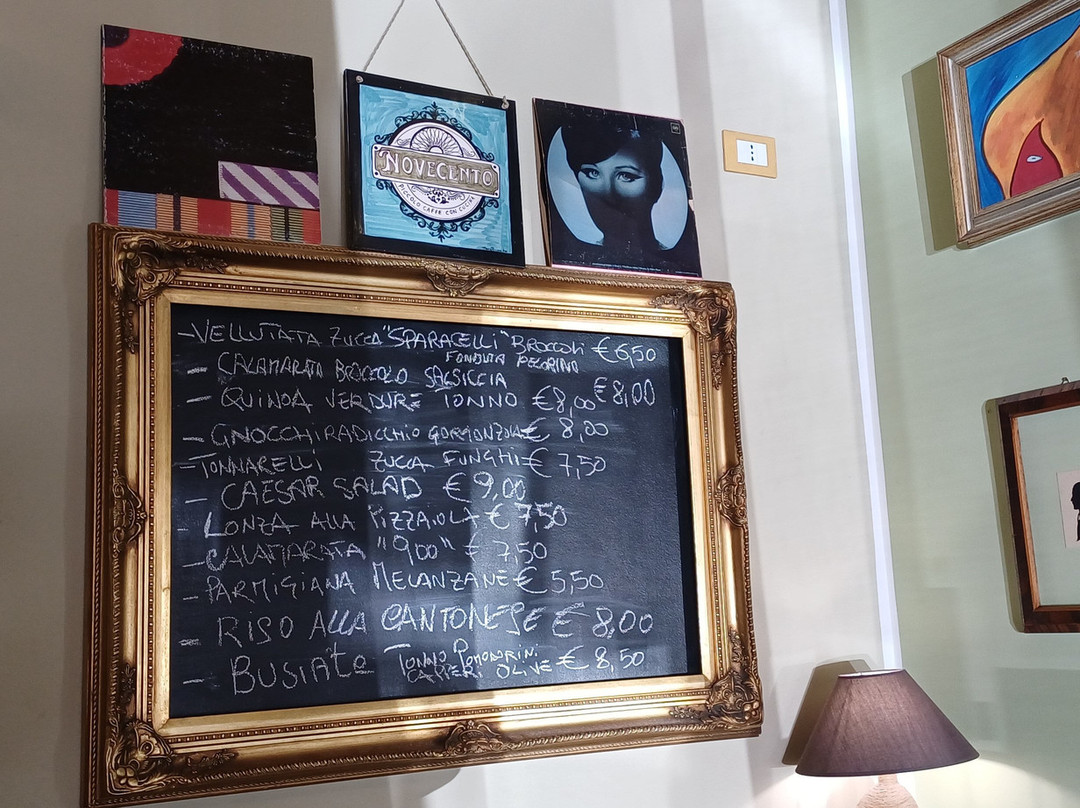 NOVECENTO
PICCOLO CAFFE CON CUCINA
- VELLUTATA ZUCCA "SPARACELLI" BROCCOLI €6,50
- CALAMARATA BROCCOLO SALSICCIA FONDUTA PECORINO €8,00
- QUINOA VERDURE TONNO €8,00
- GNOCCHI RADICCHIO GORGONZOLA € 8,00
- TONNARELLI ZUCCA FUNGHI € 7,50
- CAESAR SALAD € 9,00
- LONZA ALLA PIZZAIOLA € 7,50
- CALAMARATA "900" € 7,50
- PARMIGIANA MELANZANE € 5,50
- RISO ALLA CANTONESE € 8,00
- BUSIATE TONNO POMODORINI CAPPERI OLIVE € 8,50